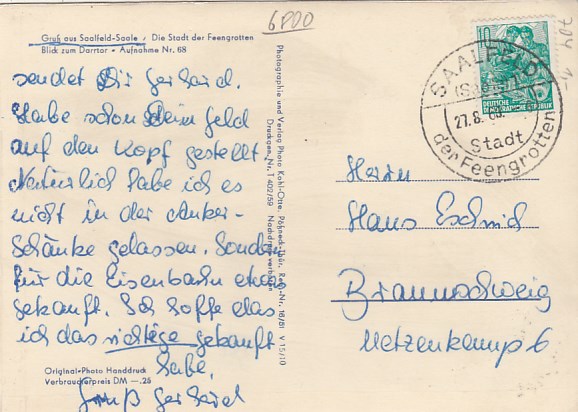 6800
704 1-
Gruß aus Saalfeld-Saale, Die Stadt der Feengrotten
Blick zum Dartor • Aufnahme Nr. 68
sendet Dir Gerhard.
Habe schon Dein Geld
auf den Kopf gestellt.
Natürlich habe ich es
nicht in der Anker-
Schänke gelassen. Sondern
für die Eisenbahn etwas
gekauft. Ich hoffe das
ich das richtige gekauft
habe.
Gruß Gerhard
Original-Photo Handdruck
Verbraucherpreis DM —.25
Photographie und Verlag Photo Kahl-Otte, Pößneck-Thür. Reg.-Nr. 18/81 V 15/10
Druckgen.-Nr. T 402/59 Nachdruck verboten
10
DEUTSCHE
DEMOKRATISCHE REPUBLIK
SAALFELD
27.8.
Stadt
der Feengrotten
Herrn
Hans
Braunschweig
Metzenkamp 6